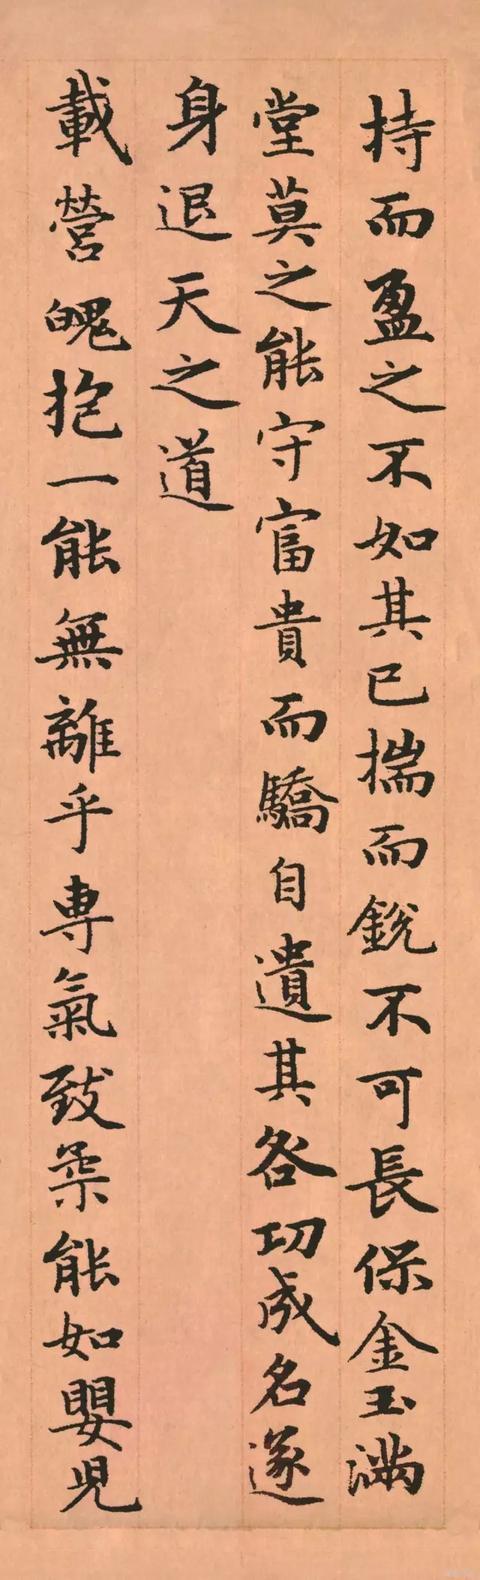 持而盈之不如其已揣而銳不可長保金玉滿
堂莫之能守富貴而驕自遺其咎功成名遂
身退天之道
載營魄抱一能無離乎專氣致柔能如嬰兒